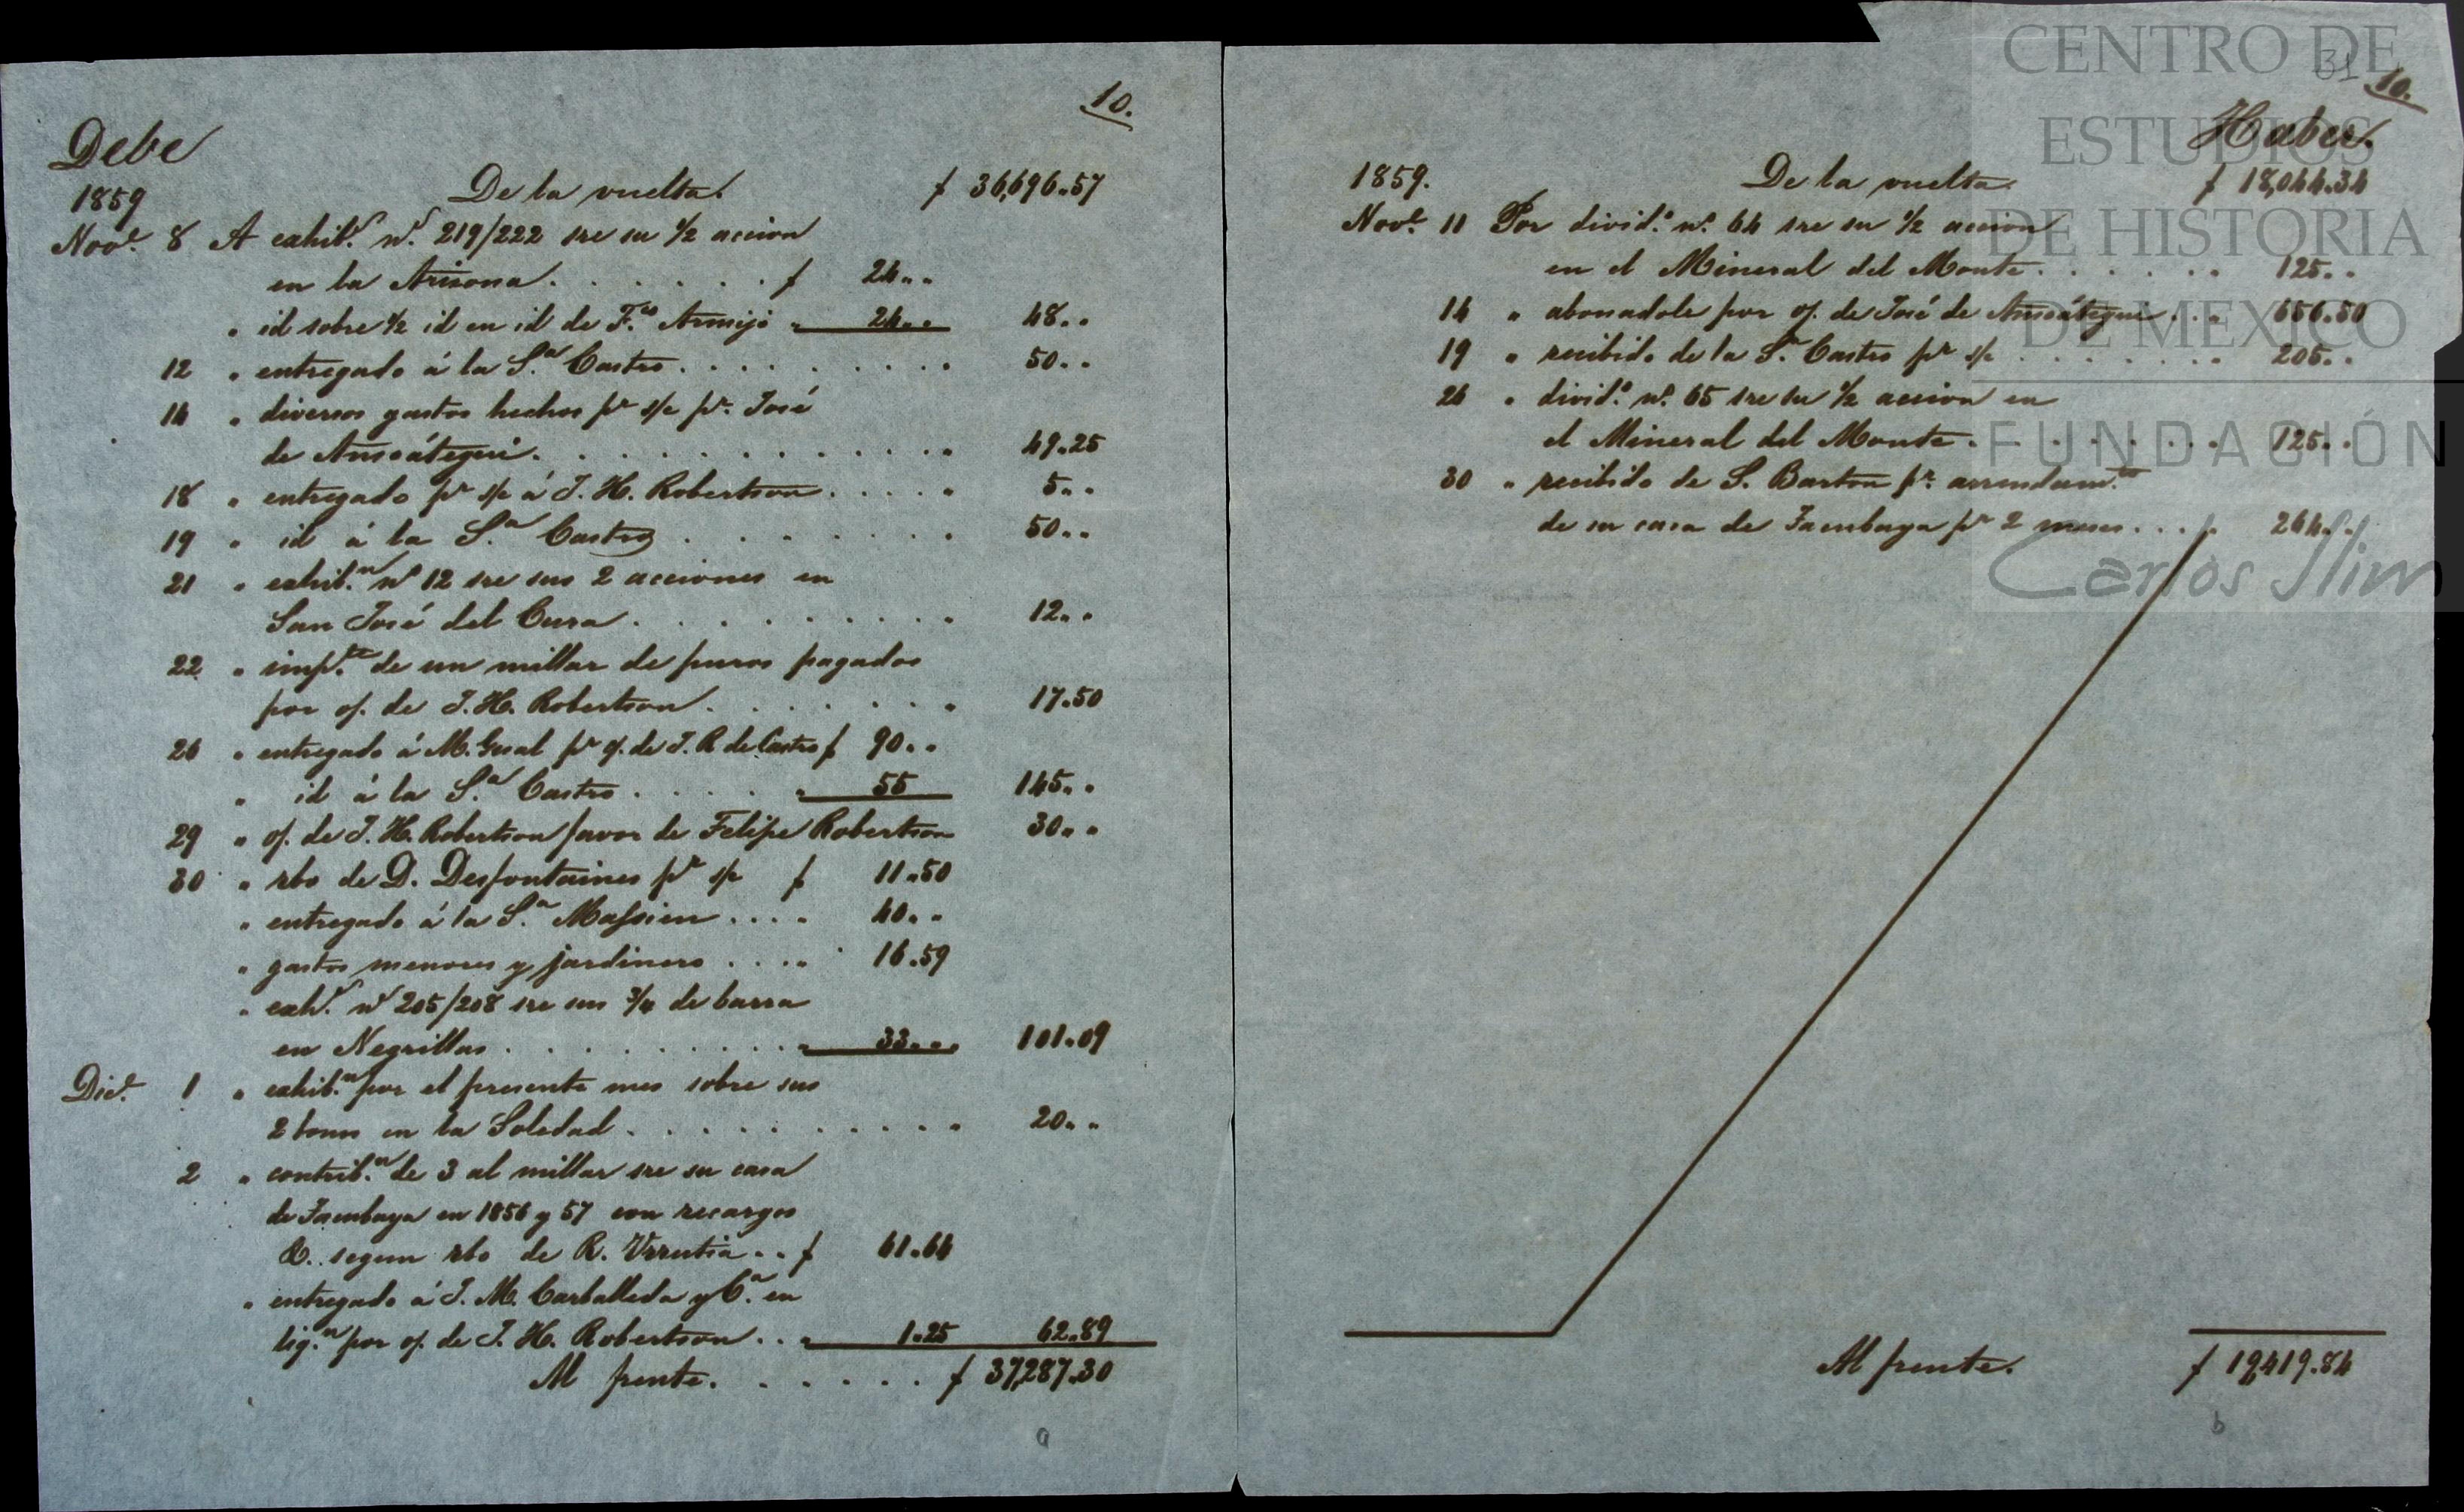 10.
Debe
1859 De la vuelta. $ 36,696.57
Nove. 8 A exhibs. ns. 219/222 sre su 1/2 accion
en la Arizona . . . . . . . $ 24 " "
" id sobre 1/2 id en id de F.co Armijo " 24 " " 48 " "
12 " entregado á la S.a Castro . . . . . . . . . " 50 " "
14 " diversos gastos hechos pr s/c pr. José
de Ansoátegui . . . . . . . . . . . . " 49.25
18 " entregado pr s/c á J. H. Robertson . . . . " 5 " "
19 " id á la S.a Castro . . . . . . . " 50 " "
21 " exhib.n no 12 sre sus 2 acciones en
San José del Cura . . . . . . . . . " 12 " "
22 " imp.te de un millar de puros pagados
por o/. de J. H. Robertson . . . . . . . " 17.50
26 " entregado á M. Gual pr o/. de J. R de Castro $ 90 " "
" id á la S.a Castro . . . . . " 55 145 " "
29 " o/. de J. H. Robertson favor de Felipe Robertson 30 " "
30 " rbo de D. Desfontaines pr s/c $ 11.50
" entregado á la S.a Massieu . . . " 40 " "
" gastos menores y jardinero . . . " 16.59
" exhs. ns 205/208 sre sus 3/4 de barra
en Negrillas . . . . . . . . . . " 33 " " 101.09
Dice. 1 " exhib.n por el presente mes sobre sus
2 bonos en la Soledad . . . . . . . . . . " 20 " "
2 " contrib.n de 3 al millar sre su casa
de Tacubaya en 1856 y 57 con recargos
&. segun rbo de R. Urrutia . . $ 61.64
" entregado á J. M. Carballeda y C.a en
liq.n por o/. de J. H. Robertson . . " 1.25 62.89
Al frente . . . . . . . $ 37,287.30
a
31
10.
Haber.
1859. De la vuelta. $ 18,044.34
Nove. 11 Por divid.o no. 64 sre su 1/2 accion
en el Mineral del Monte . . . . . . " 125 " "
14 " abonadole por o/. de José de Ansoátegui . . . " 656.50
19 " recibido de la S.a Castro pr s/c . . . . . . . " 205 " "
26 " divid.o no. 65 sre su 1/2 accion en
el Mineral del Monte . . . . . . . . " 125 " "
30 " recibido de S. Barton pr. arrendam.to
de su casa de Tacubaya pr 2 meses . . . " 264 " "
Al frente. $ 19,419.84
b
CENTRO DE
ESTUDIOS
DE HISTORIA
DE MEXICO
FUNDACIÓN
Carlos Slim